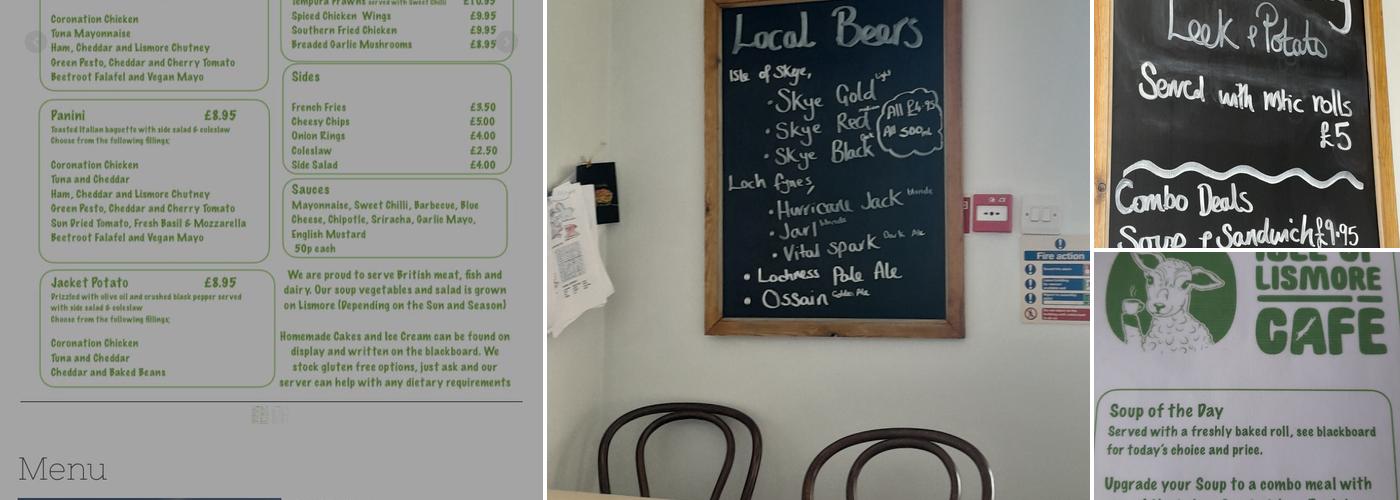 Coronation Chicken
Tuna Mayonnaise
Ham, Cheddar and Lismore Chutney
Green Pesto, Cheddar and Cherry Tomato
Beetroot Falafel and Vegan Mayo
Panini £8.95
Toasted Italian baguette with side salad & coleslaw
Choose from the following fillings;
Coronation Chicken
Tuna and Cheddar
Ham, Cheddar and Lismore Chutney
Green Pesto, Cheddar and Cherry Tomato
Sun Dried Tomato, Fresh Basil & Mozzarella
Beetroot Falafel and Vegan Mayo
Jacket Potato £8.95
Drizzled with olive oil and crushed black pepper served
with side salad & coleslaw
Choose from the following fillings;
Coronation Chicken
Tuna and Cheddar
Cheddar and Baked Beans
Tempura Prawns served with Sweet Chilli £10.95
Spiced Chicken Wings £9.95
Southern Fried Chicken £9.95
Breaded Garlic Mushrooms £8.95
Sides
French Fries £3.50
Cheesy Chips £5.00
Onion Rings £4.00
Coleslaw £2.50
Side Salad £4.00
Sauces
Mayonnaise, Sweet Chilli, Barbecue, Blue
Cheese, Chipotle, Sriracha, Garlic Mayo,
English Mustard
50p each
We are proud to serve British meat, fish and
dairy. Our soup vegetables and salad is grown
on Lismore (Depending on the Sun and Season)
Homemade Cakes and Ice Cream can be found on
display and written on the blackboard. We
stock gluten free options, just ask and our
server can help with any dietary requirements
Menu
Local Beers
Isle of Skye,
• Skye Gold Light
• Skye Red
• Skye Black
All £4.95
All 500ml
Loch fynes,
• Hurricane Jack blonde
• Jarl blonde
• Vital Spark Dark Ale
• Lochness Pale Ale
• Ossain Golden Ale
Fire action
Leek & Potato
Served with rustic rolls
£5
Combo Deals
Soup & Sandwich £9.95
ISLE OF
LISMORE
CAFE
Soup of the Day
Served with a freshly baked roll, see blackboard
for today's choice and price.
Upgrade your Soup to a combo meal with